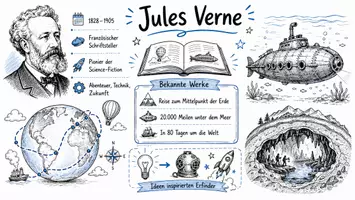 Jules Verne
1828 – 1905
Französischer
Schriftsteller
Pionier der
Science-Fiction
Abenteuer, Technik,
Zukunft
Bekannte Werke
Reise zum Mittelpunkt der Erde
20.000 Meilen unter dem Meer
In 80 Tagen um die Welt
Ideen inspirierten Erfinder